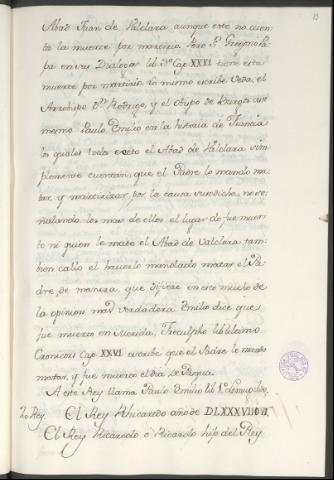 13
Abad Juan de Valclara aunque este no cuen-
ta la muerte por martirio. Pero Sn. Gregorio Pa-
pa en sus Dialogos lib 3º Cap XXXI tiene esta
muerte por martirio lo mismo escribe Veda, el
Arzobispo Dn. Rodrigo, y el Obispo de Burgos asi-
mesmo Paulo Emilio en la historia de Francia
los quales todos esto el Abad de Valclara sim-
plemente cuentan que el Padre lo mando ma-
tar y martirizar por la causa susodicha no se-
ñalando los mas de ellos el lugar do fue muer-
to ni quien le mato el Abad de Valclara tam-
bien callo el haverlo mandado matar el Pa-
dre, de manera, que difiere en esto mucho de
la opinion mas verdadera Emilio dice que
fue muerto en Merida, Freculpho lib. ultimo
Cronicon Cap. XXVI escribe que el Padre lo mando
matar, y fue muerto el dia de Pasqua.
A este Rey llama Paulo Emilio lib 1º
20 Rey. El Rey Rhicaredo año de DLXXXVII
El Rey Ricaredo o Ricardo hijo del Rey